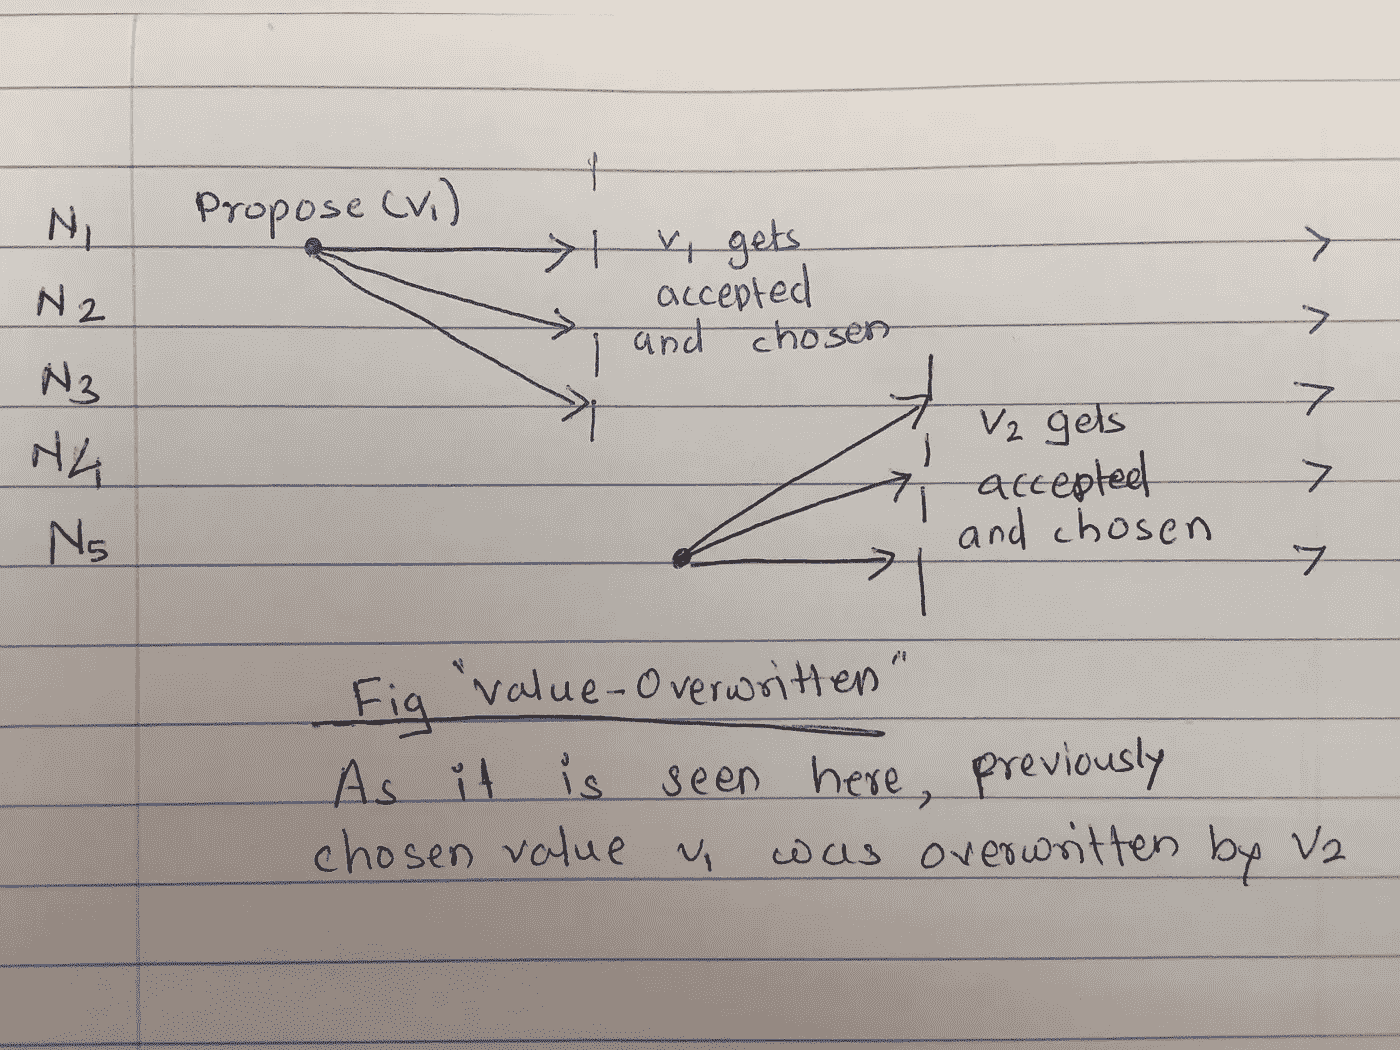 N1
Propose (V1)
v1 gets
accepted
and chosen
N2
N3
N4
N5
V2 gets
accepted
and chosen
Fig "value-Overwritten"
As it is seen here, previously
chosen value v1 was overwritten by V2